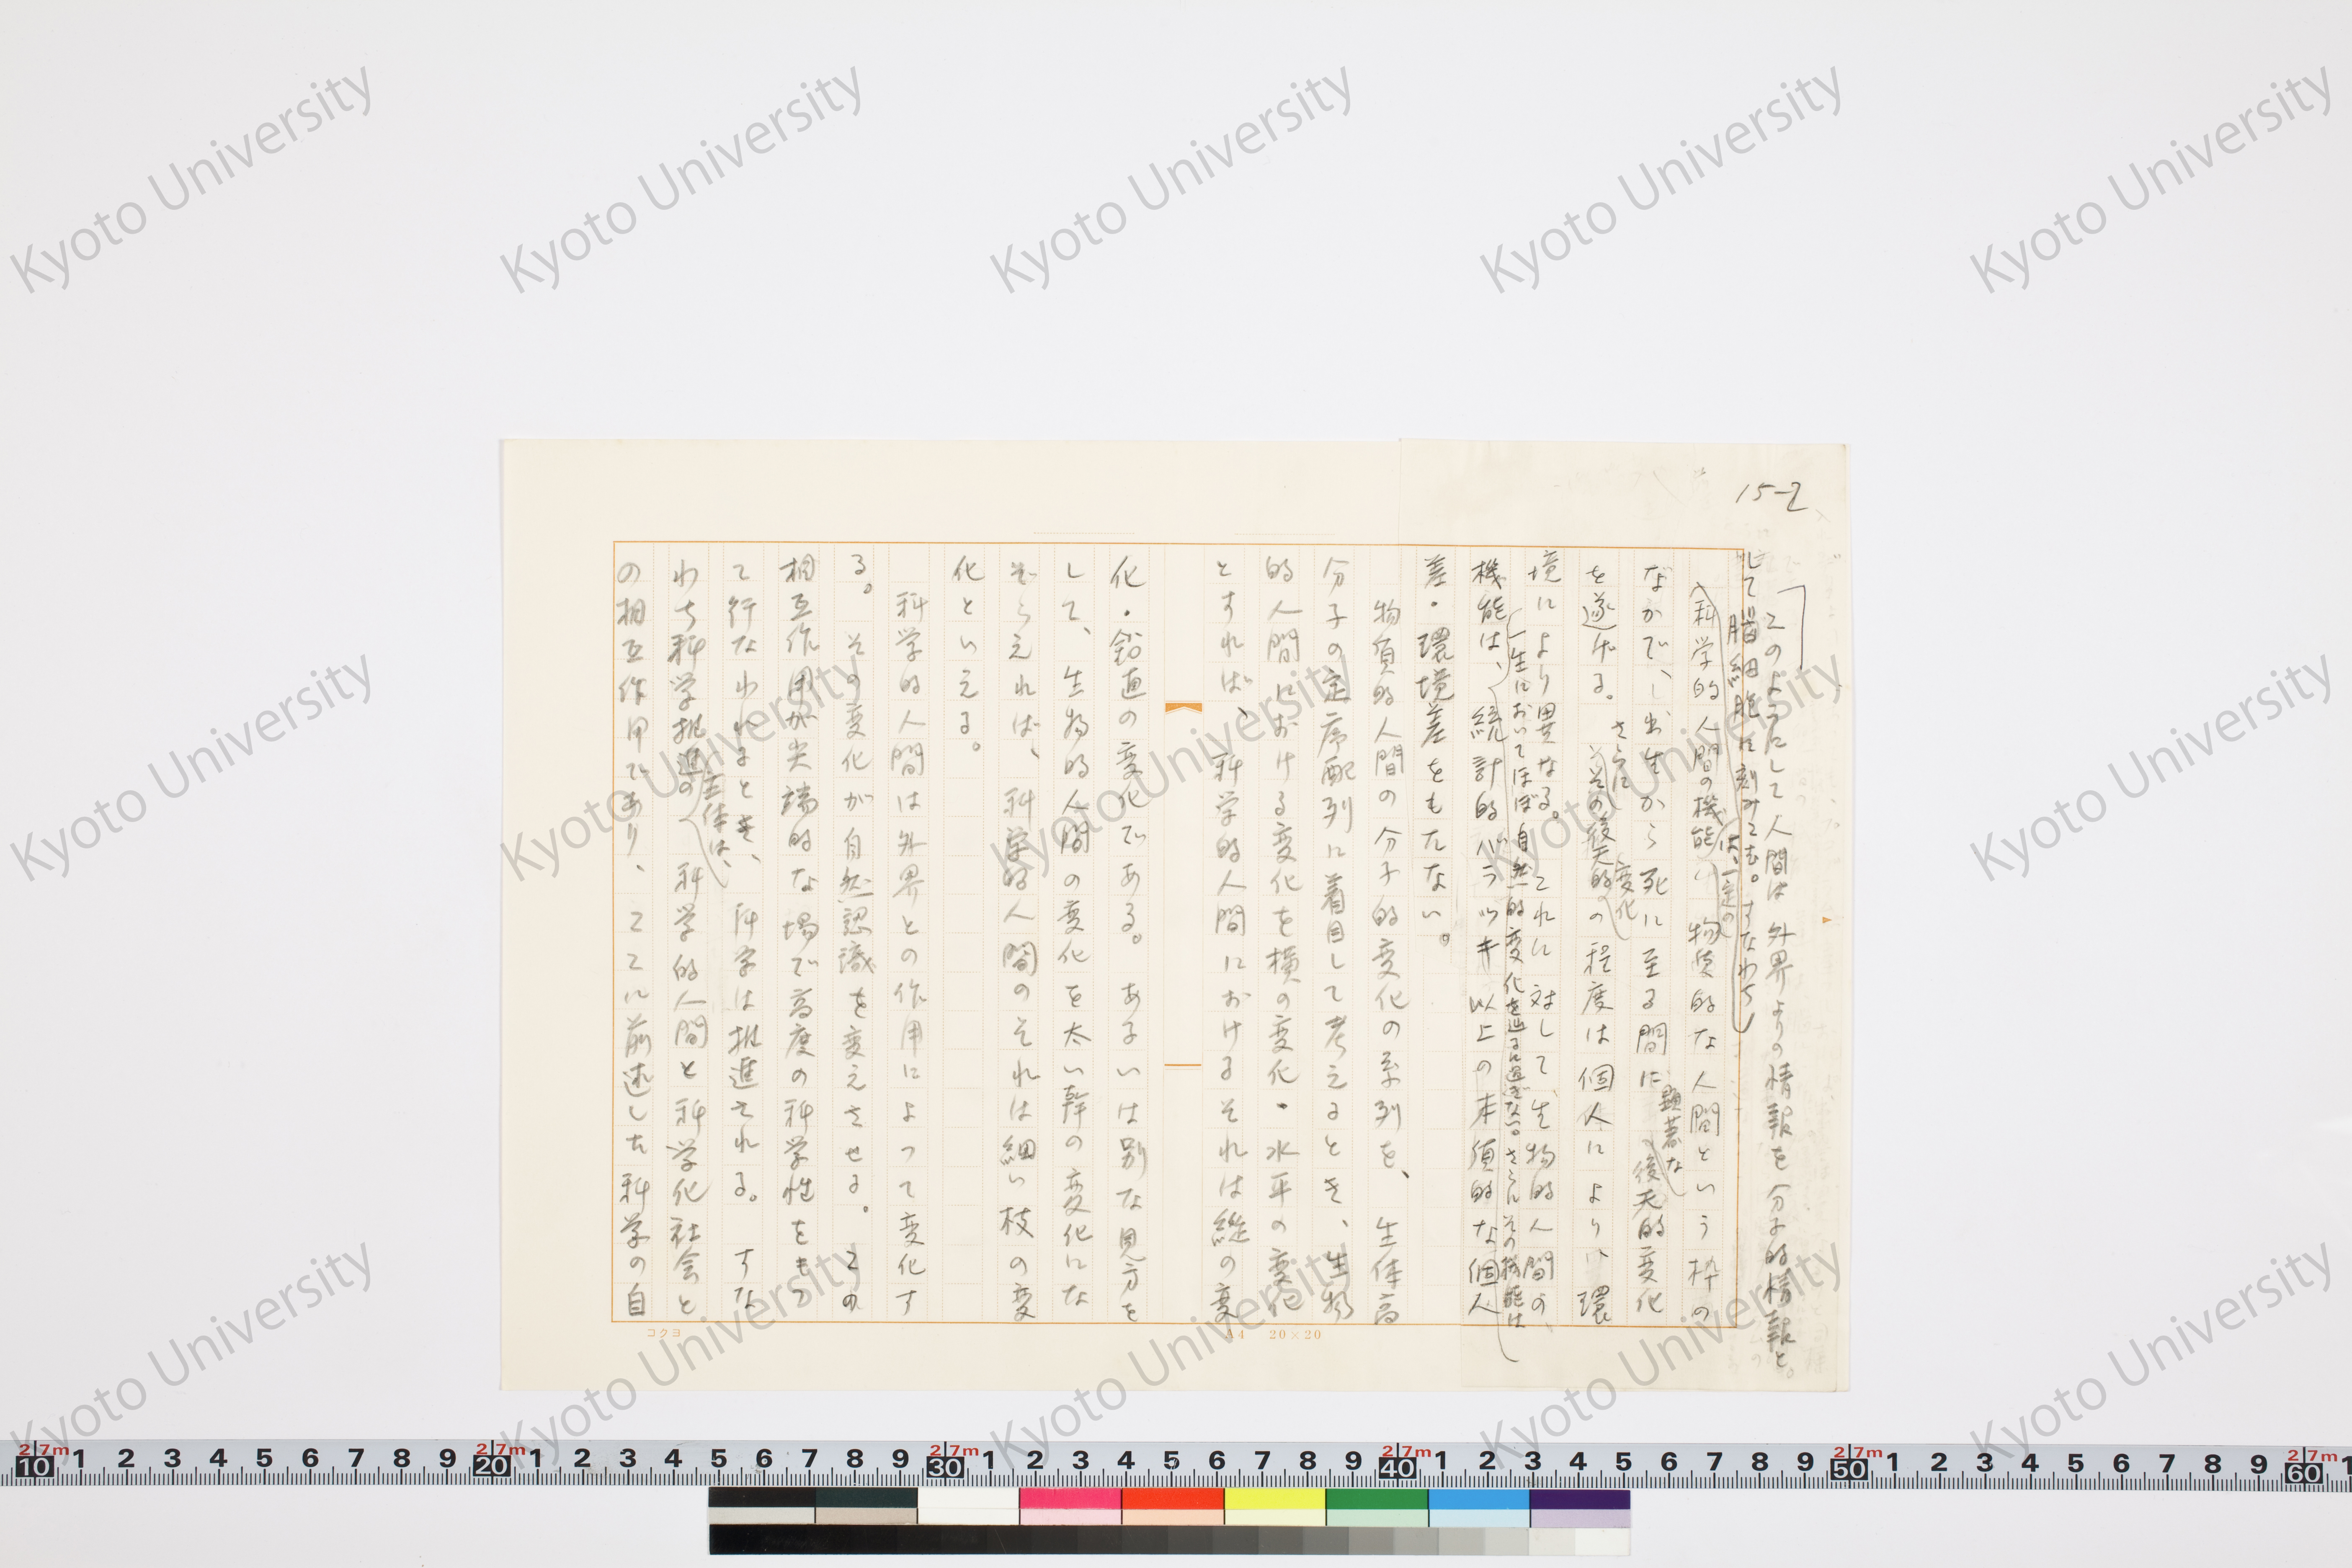 15-2
このようにして人間は外界よりの情報を分子的情報と
して脳細胞に刻みこむ。すなわち
科学的人間の機能は、一定の物質的な人間という枠の
なかで、出生から死に至る間に顕著な後天的変化
を遂げる。さらにその後天的変化の程度は個人により、環
境により異なる。これに対して生物的人間の、
一生においてほぼ自然的変化を辿るに過ぎない。さらにその機能は
機能は、統計的バラツキ以上の本質的な個人
差・環境差をもたない。
物質的人間の分子的変化の系列を、生体高
分子の定序配列に着目して考えるとき、生物
的人間における変化を横の変化・水平の変化
とすれば、科学的人間におけるそれは縦の変
化・鉛直の変化である。あるいは別な見方を
して、生物的人間の変化を太い幹の変化にな
ぞらえれば、科学的人間のそれは細い枝の変
化といえる。
科学的人間は外界との作用によって変化す
る。その変化が自然認識を変えさせる。この
相互作用が尖端的な場で高度の科学性をもっ
て行なわれるとき、科学は推進される。すな
わち科学推進の主体は、科学的人間と科学化社会と
の相互作用であり、ここに前述した科学の自
コクヨ
A4 20×20